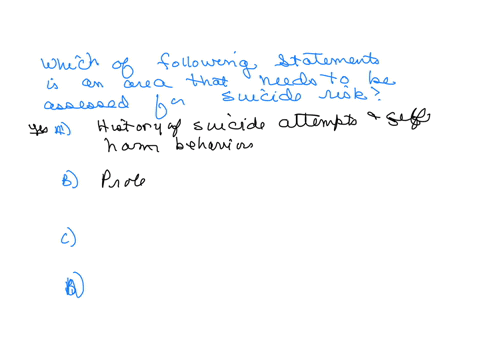 Which of following statements
is an area that needs to be
assessed for suicide risk?
Yes A) History of suicide attempts & self
harm behavior
B) Prole
C)
D)